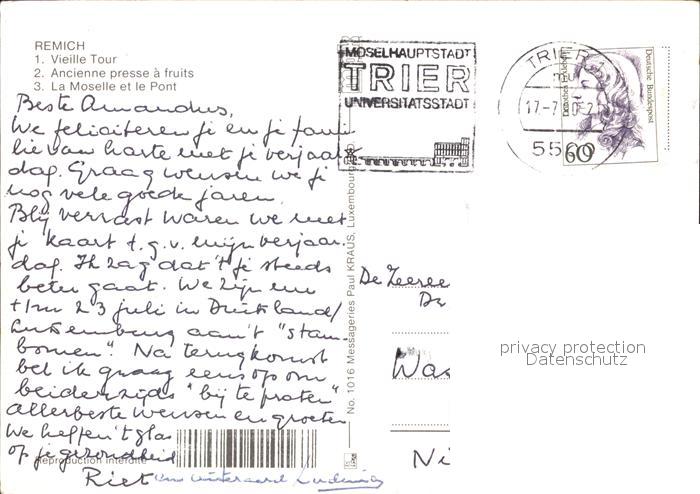 REMICH
1. Vieille Tour
2. Ancienne presse à fruits
3. La Moselle et le Pont
Beste Amandus,
We feliciteren je en je fami-
lie van harte met je verjaar
dag. Graag wensen we je
nog vele goede jaren.
Blij verrast waren we met
je kaart t.g.v. mijn verjaar-
dag. Ik zag dat 't je steeds
beter gaat. We zijn en
t/m 23 juli in Duitsland/
Luxemburg aan 't "stam
bomen". Na terugkomst
bel ik graag eens op om
beiderzijds "bij te praten"
allerbeste wensen en groeten
We heffen 't glas
op je gezondheid
Riet
Reproduction interdite
No. 1016 Messageries Paul KRAUS, Luxembourg
MOSELHAUPTSTADT
TRIER
UNIVERSITÄTSSTADT
TRIER
17.-7.
5500
Deutsche Bundespost
60
De Zeeree
Da
Was
Ni
privacy protection
Datenschutz